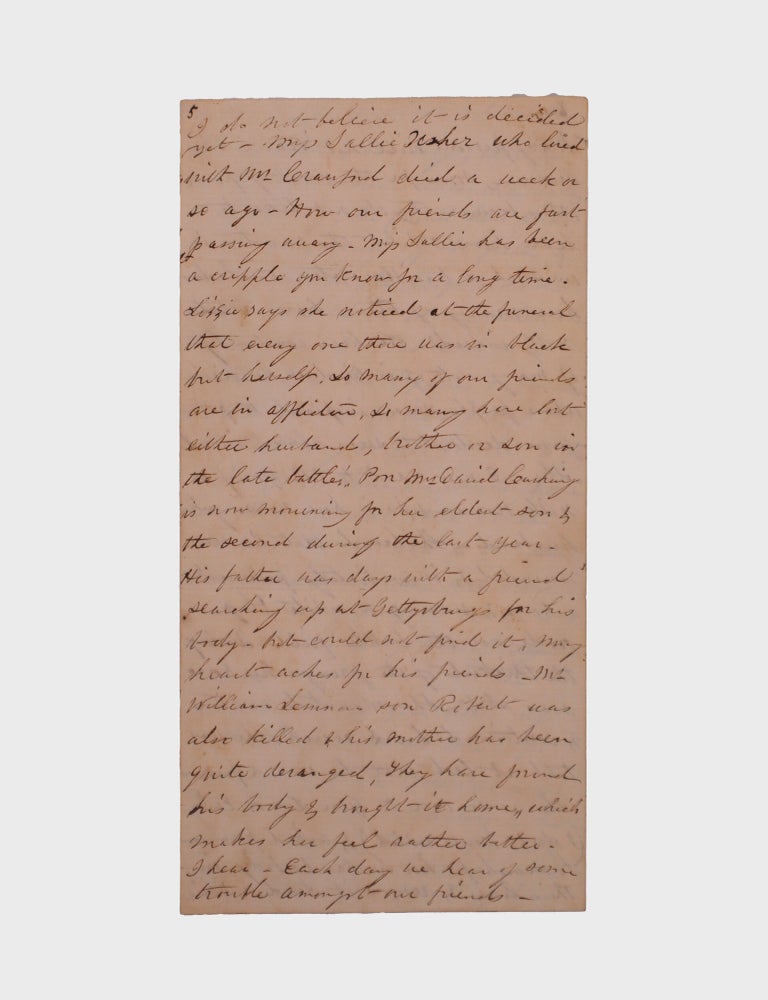 5
I do not believe it is decided
yet - Miss Sallie Usher who lived
with Mr Crawford died a week or
so ago - How our friends are fast
passing away - Miss Sallie has been
a cripple you know for a long time.
Lizzie says she noticed at the funeral
that every one there was in black
but herself, So many of our friends
are in affliction, So many have lost
either husband, brother or son in
the late battles, Poor Mrs David Cushing
is now mourning for her eldest son &
the second during the last year -
His father was days with a friend
searching up at Gettysburg for his
body - but could not find it, my
heart aches for his friends - Mr
William son Robert was
also killed & his mother has been
quite deranged, They have found
his body & brought it home, which
makes her feel rather better -
I hear - Each day we hear of some
trouble amongst our friends -